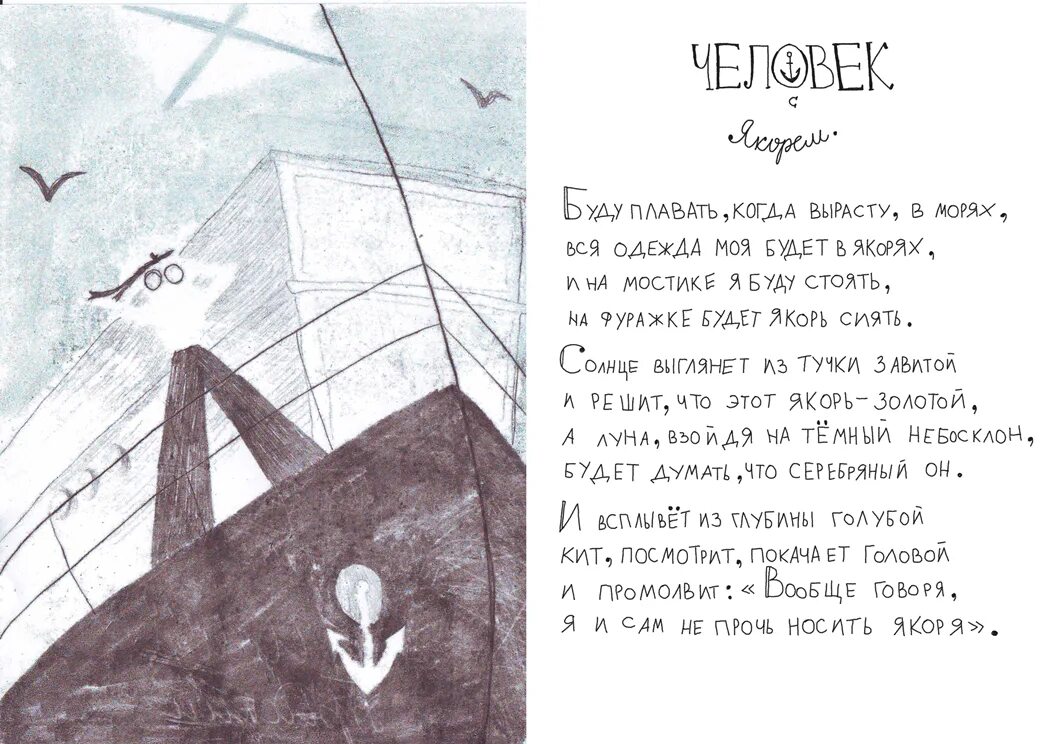 ЧЕЛОВЕК
с
Якорем.
Буду плавать, когда вырасту, в морях,
вся одежда моя будет в якорях,
и на мостике я буду стоять,
на фуражке будет якорь сиять.
Солнце выглянет из тучки завитой
и решит, что этот якорь – золотой,
а луна, взойдя на тёмный небосклон,
будет думать, что серебряный он.
И всплывёт из глубины голубой
кит, посмотрит, покачает головой
и промолвит: «Вообще говоря,
я и сам не прочь носить якоря».